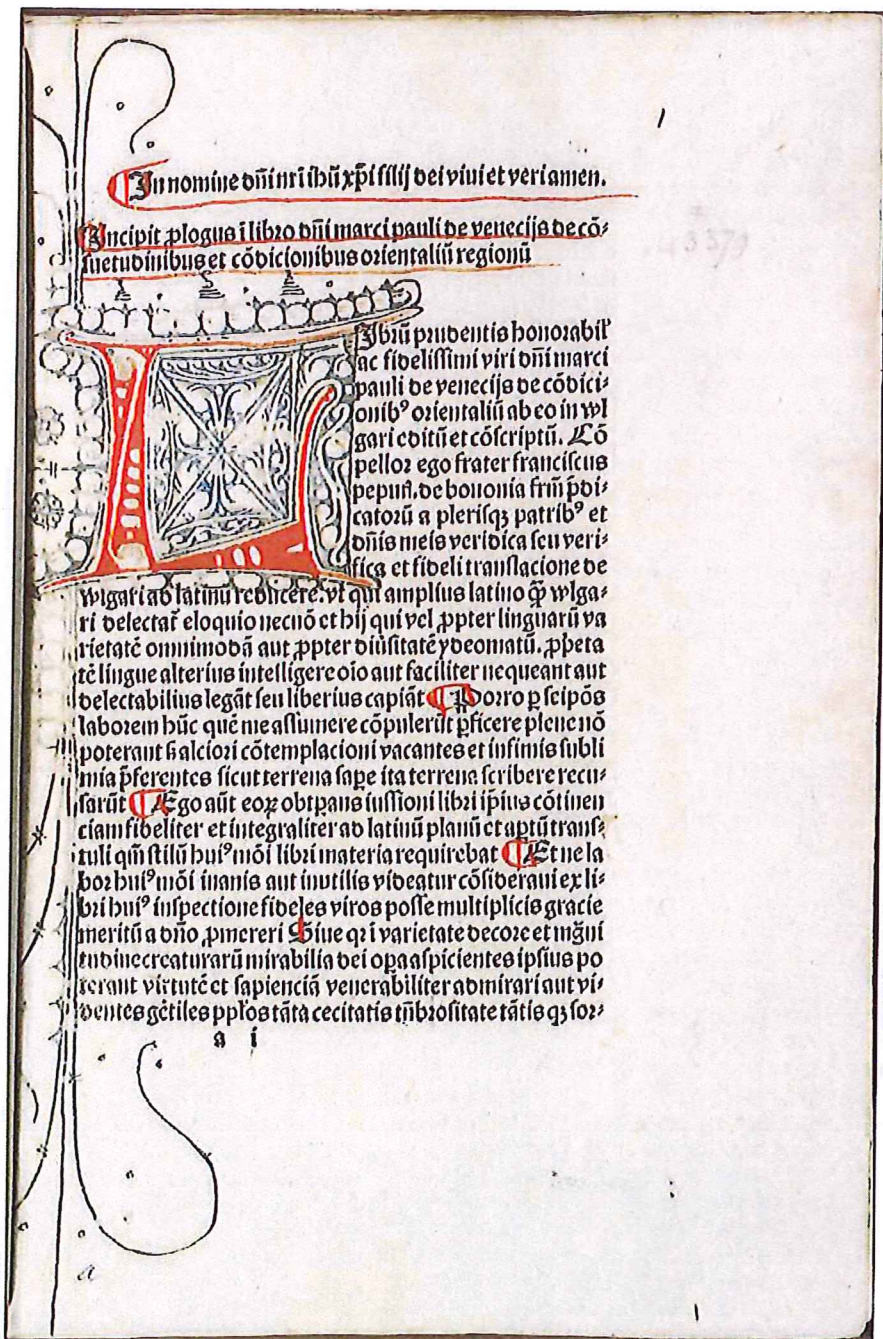 In nomine dñi nrī ihū xp̄i filij dei viui et veri amen.
Incipit ꝓlogus ī libro dñi marci pauli de venecijs de cō⸗
suetudinibus et cōdicionibus orientaliū regionū
LIbrū prudentis honorabil'
ac fidelissimi viri dñi marci
pauli de venecijs de cōdici⸗
onibꝰ orientaliū ab eo in wl
gari editū et cōscriptū. Cō
pellor ego frater franciscus
pepuꝶ. de bononia frm̄ p̄di⸗
catorū a plerisqꝫ patribꝰ et
dñis meis veridica seu veri⸗
fica et fideli translacione de
wlgari ad latinū reducere. vt qui amplius latino qͣꝫ wlga⸗
ri delectāt eloquio necnō et hij qui vel ꝓpter linguarū va
rietatē omnimodā aut ꝓpter diūsitatē ydeomatū. ꝓpͥeta
tē lingue alterius intelligere oīo aut faciliter nequeant aut
delectabilius legāt seu liberius capiāt Porro ꝑ seipōs
laborem hūc quē me assumere cōpulerūt ꝑficere plene nō
poterant s̄ alciori cōtemplacioni vacantes et infimis subli
mia p̄ferentes sicut terrena sape ita terrena scribere recu⸗
sarūt Ego aūt eoꝝ obtꝑans iussioni libri ip̄ius cōtinen
ciam fideliter et integraliter ad latinū planū et aptū trans⸗
tuli qm̄ stilū huiꝰmōi libri materia requirebat Et ne la
bor huiꝰmōi inanis aut inutilis videatur cōsideraui ex li⸗
bri huiꝰ inspectione fideles viros posse multiplicis gracie
meritū a dño ꝓmereri Siue qꝛ ī varietate decore et mg̃ni
tudine creaturarū mirabilia dei oꝑa aspicientes ipsius po
terant virtutē et sapienciā venerabiliter admirari aut vi⸗
dentes gētiles pp̄los tāta cecitatis tn̄brositate tātis qꝫ sor⸗
a i
a